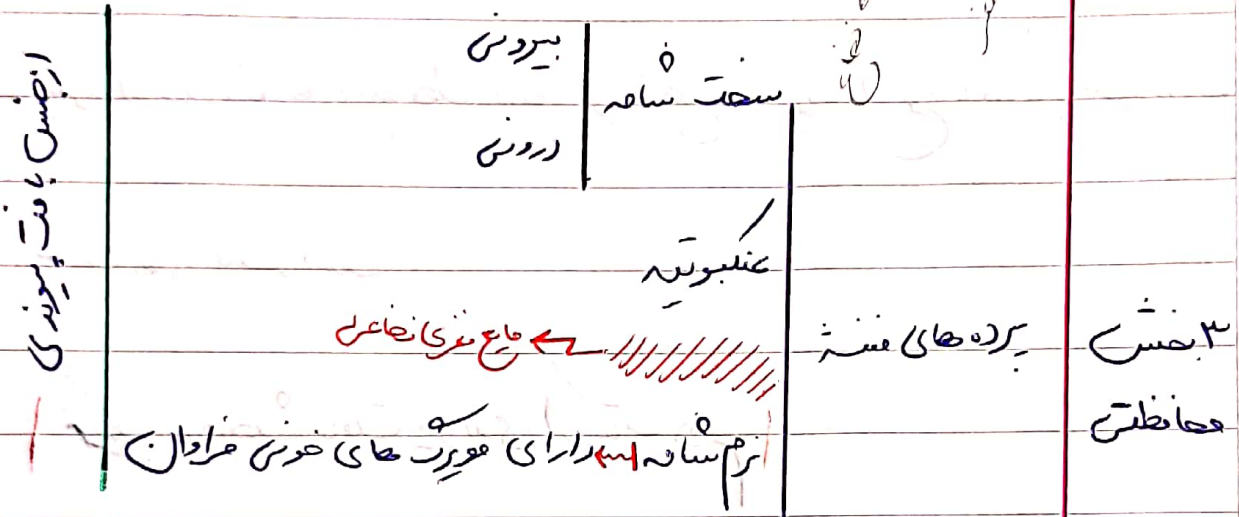 ۳ بخش
محافظتی
پرده های مننژ
سخت شامه
بیرونی
درونی
عنکبوتیه
مایع مغزی نخاعی
نرم شامه دارای مویرگ های خونی فراوان
از جنس بافت پیوندی